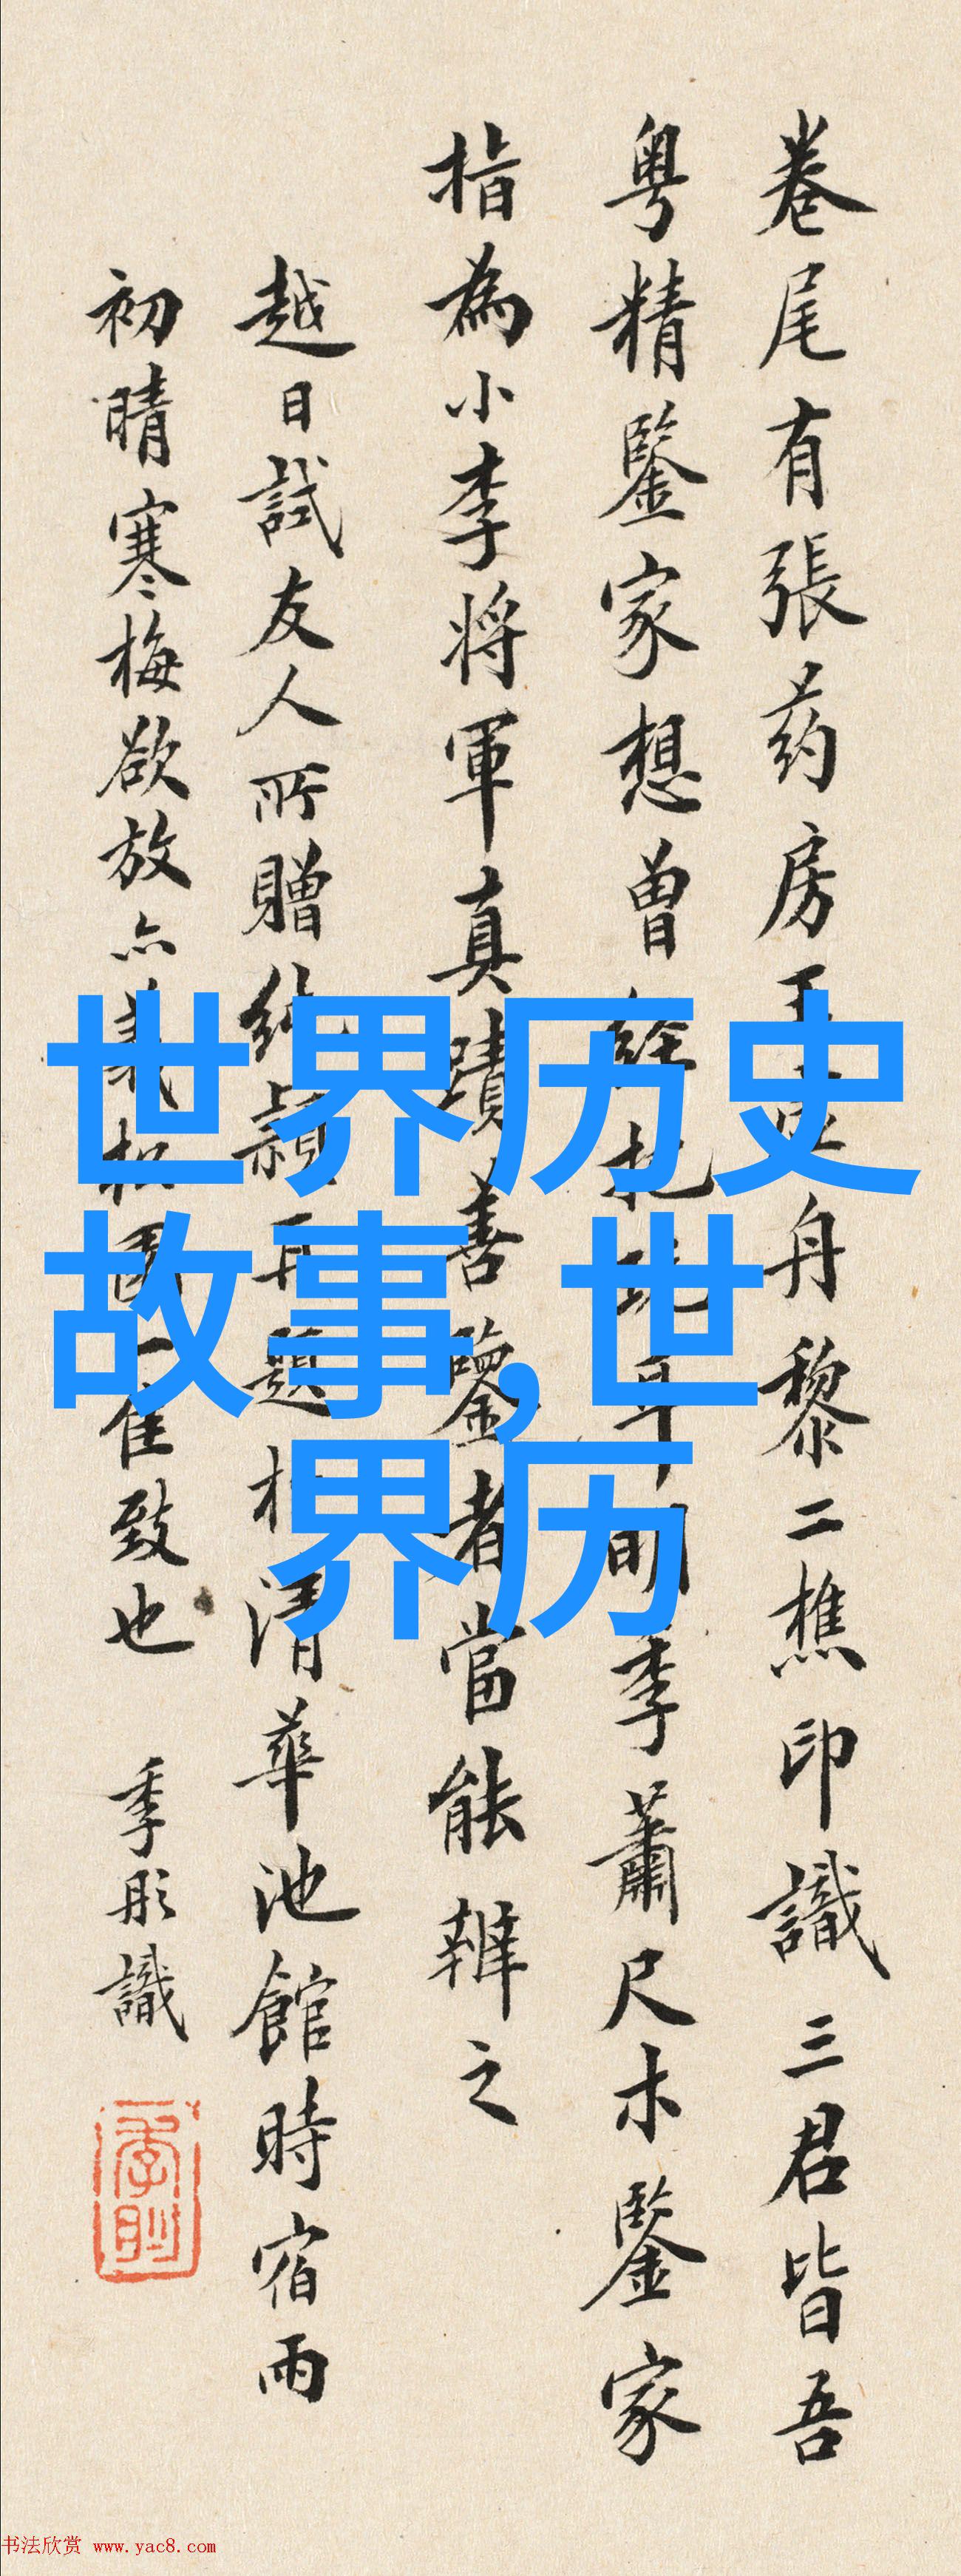 卷尾有張药房 舟黎二樵印識三君皆吾
粤精鑒家想曾 季蕭尺木鑒家
指為小李将軍真蹟善鑒者當能辨之
越日試友人所贈 題 清華池館時宿雨
初晴寒梅欲放亦 致也 季彤識
世界历史
故事,世
界历
书法欣赏 www.yac8.com